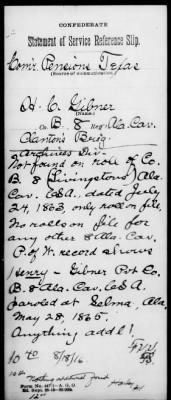 CONFEDERATE
Statement of Service Reference Slip.
Com'r. Pensions Texas
(Source of communication.)
H. C. Gibner
(Name.)
Co. B. 8 Reg. Ala. Cav.
Clanton's Brig.
Archives Div.
Not found on roll of Co.
B. 8 (Livingstons) Ala.
Cav. C.S.A., dated July
24, 1863, only roll on file.
No rolls on file for
any other 8 Ala. Cav.
P. of W. record shows
Henry - Gibner Pvt Co.
B. 8 Ala. Cav. C.S.A.
paroled at Selma, Ala.
May 28, 1865.
Anything addl!
10 to 8/8/16
Nothing additional found
Form No. A. G. O.